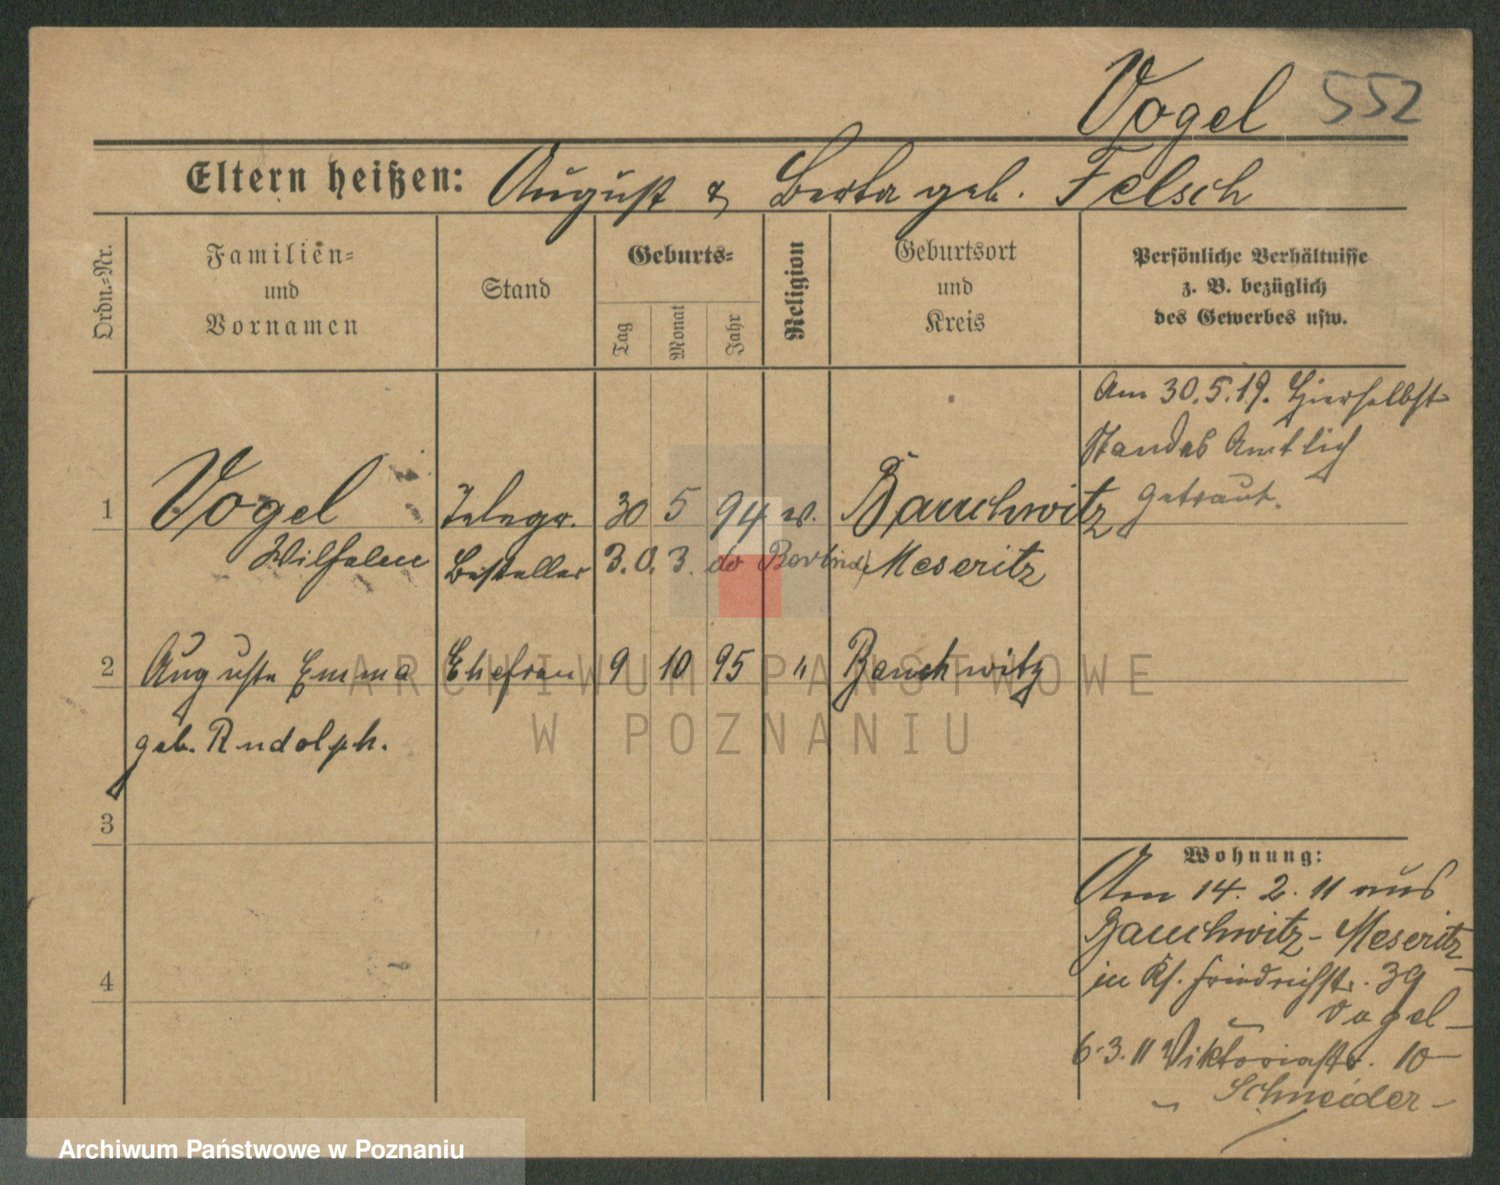 Vogel 552
Eltern heißen: August & Berta geb. Felsch
Ordn.-Nr.
Familien-
und
Vornamen
Stand
Geburts-
Tag
Monat
Jahr
Religion
Geburtsort
und
Kreis
Persönliche Verhältnisse
z. B. bezüglich
des Gewerbes usw.
Am 30.5.19. Hierselbst
Standes Amtlich
getraut.
1 Vogel Telegr. 30 5 94 ev. Bauchwitz
Wilhelm Besteller 3.0. 3. do Meseritz
2 Auguste Emma Ehefrau 9 10 95 " Bauchwitz
geb. Rudolph.
3
4
Wohnung:
Am 14. 2. 11 aus
Bauchwitz - Meseritz
in Kf. Friedrichstr. 39
Vogel -
6.3.11 Viktoriastr. 10
Schneider -
ARCHIWUM PAŃSTWOWE
W POZNANIU
Archiwum Państwowe w Poznaniu